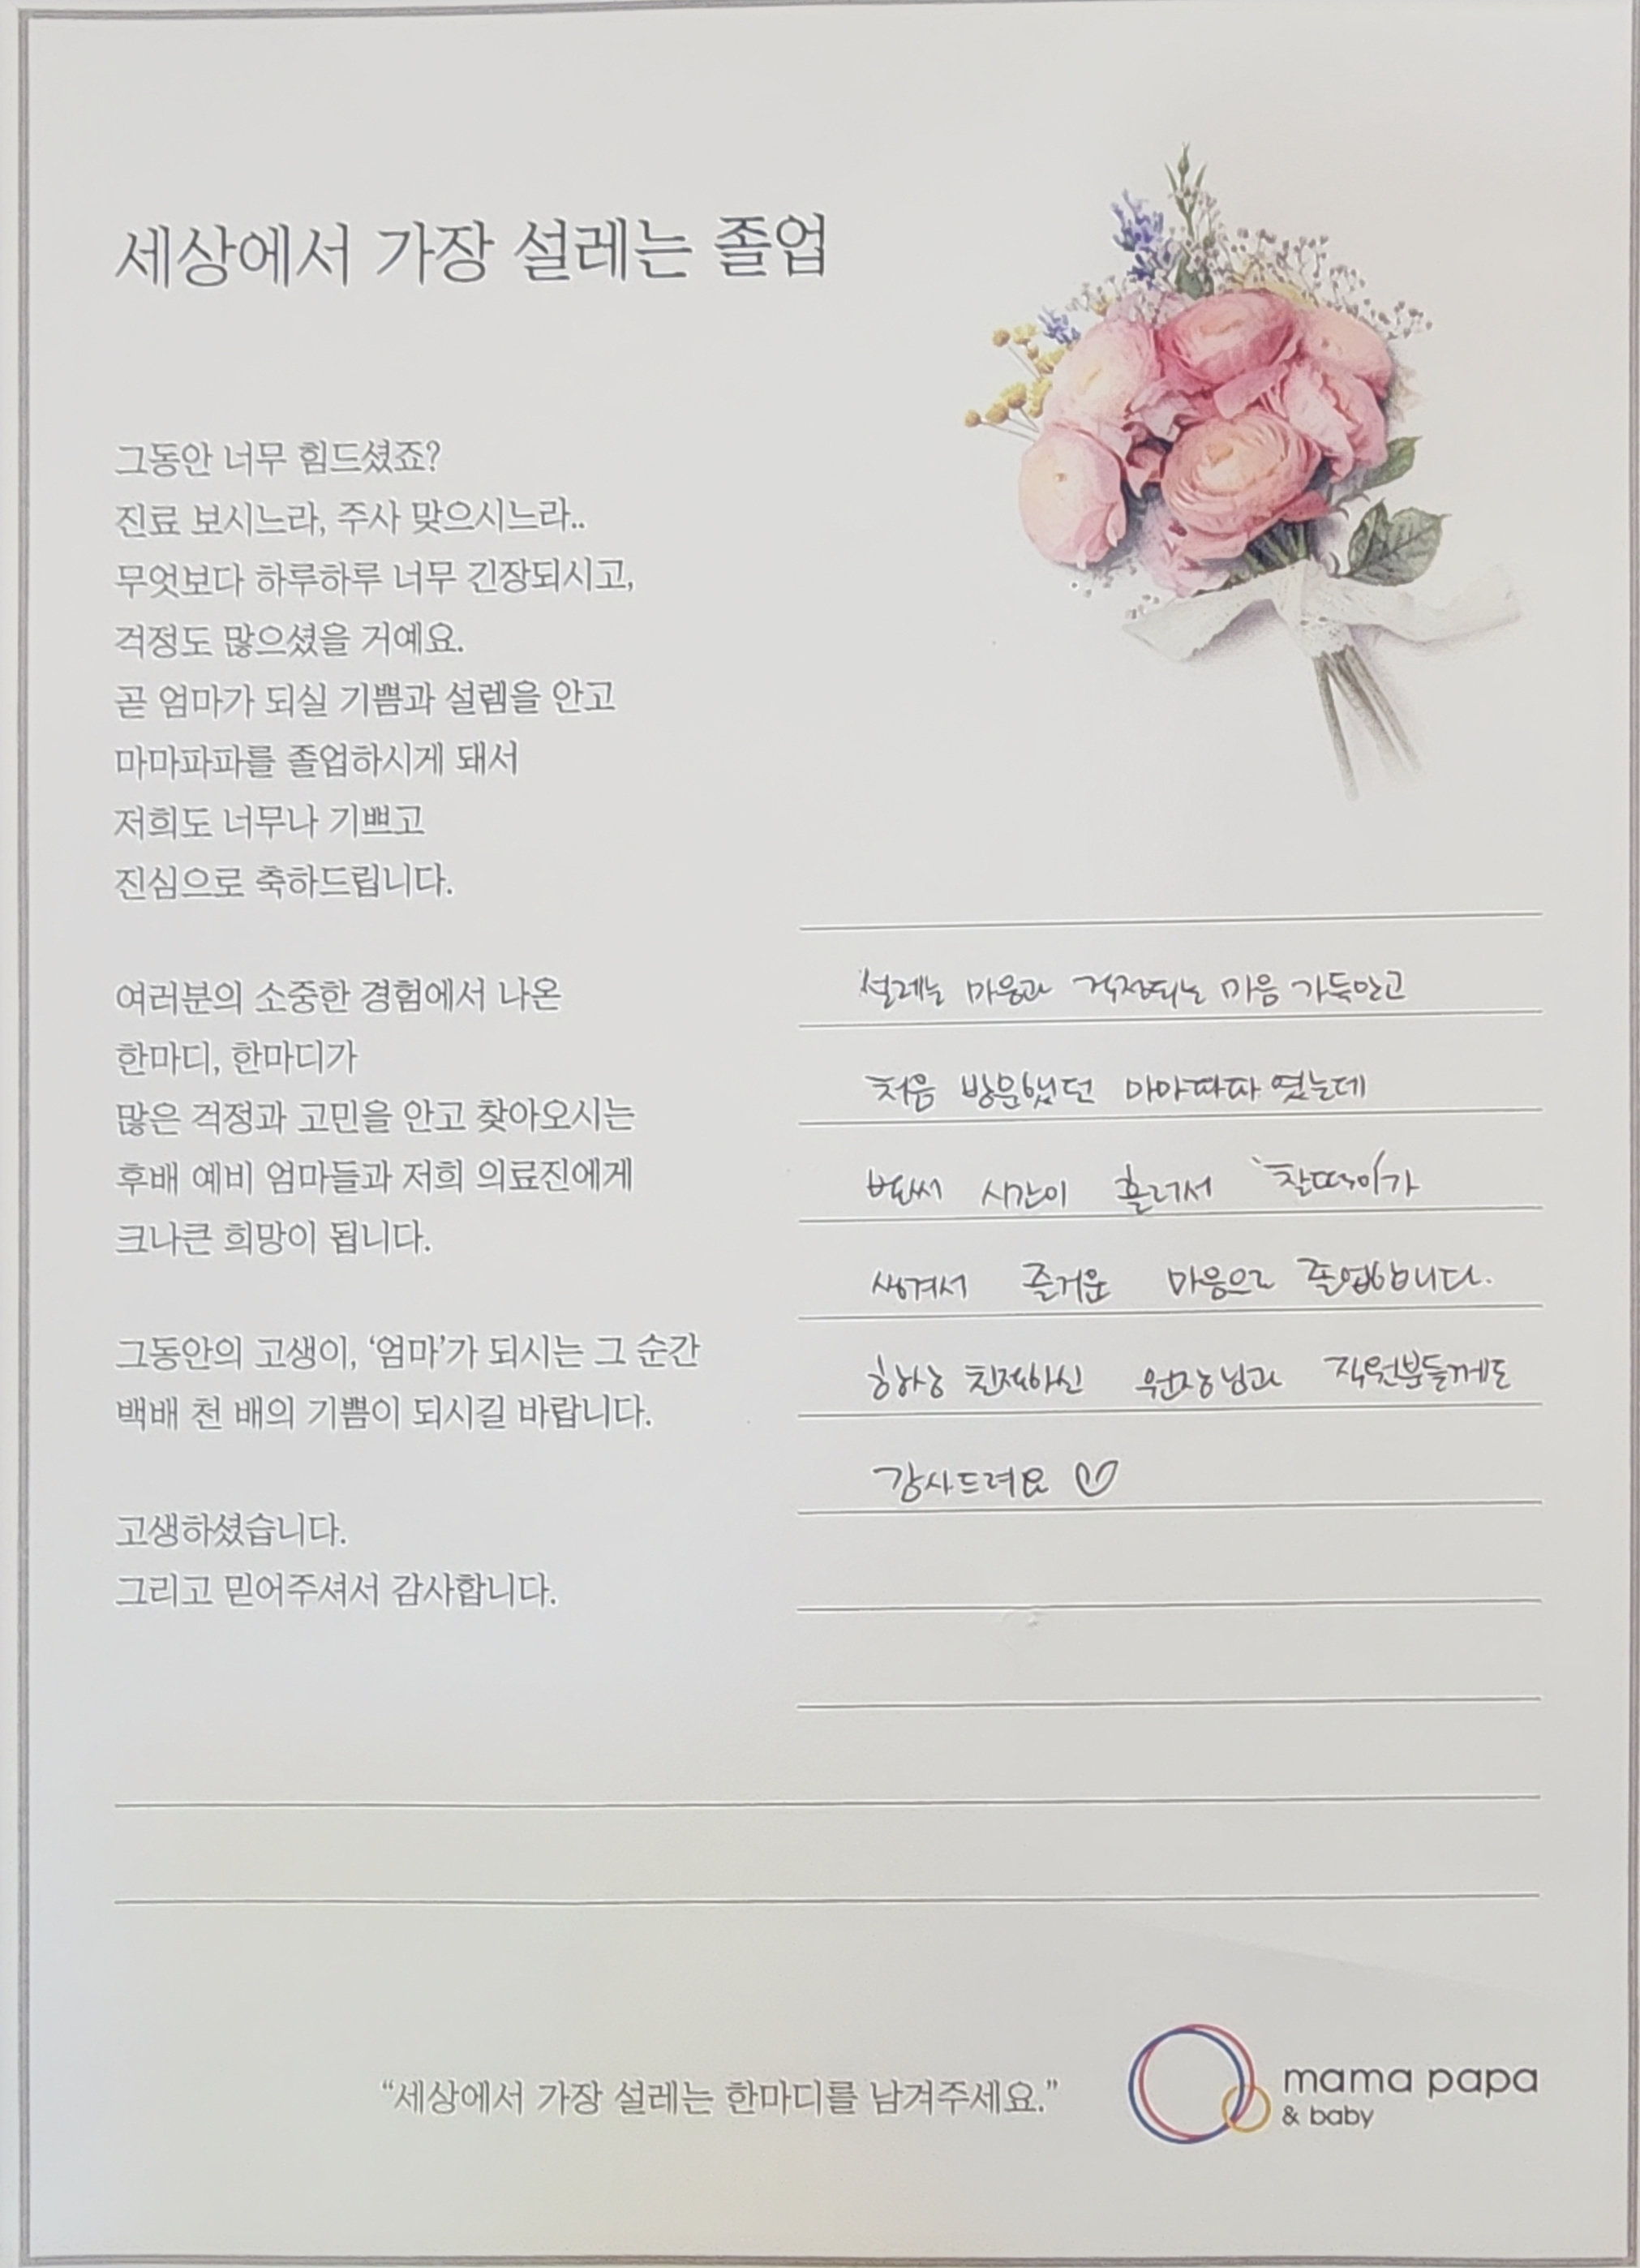 세상에서 가장 설레는 졸업
그동안 너무 힘드셨죠?
진료 보시느라, 주사 맞으시느라..
무엇보다 하루하루 너무 긴장되시고,
걱정도 많으셨을 거예요.
곧 엄마가 되실 기쁨과 설렘을 안고
마마파파를 졸업하시게 돼서
저희도 너무나 기쁘고
진심으로 축하드립니다.
여러분의 소중한 경험에서 나온
한마디, 한마디가
많은 걱정과 고민을 안고 찾아오시는
후배 예비 엄마들과 저희 의료진에게
크나큰 희망이 됩니다.
그동안의 고생이, ‘엄마’가 되시는 그 순간
백배 천 배의 기쁨이 되시길 바랍니다.
고생하셨습니다.
그리고 믿어주셔서 감사합니다.
설레는 마음과 걱정되는 마음 가득안고
처음 방문했던 마마파파 였는데
벌써 시간이 흘러서 찰떡이가
생겨서 즐거운 마음으로 졸업합니다.
항상 친절하신 원장님과 직원분들께도
감사드려요 ♡
“세상에서 가장 설레는 한마디를 남겨주세요.”
mama papa
& baby